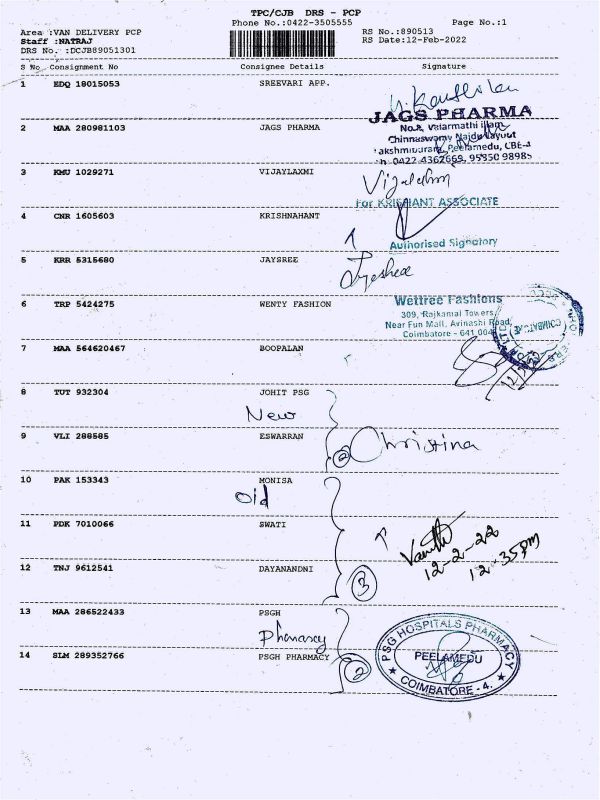 TPC/CJB DRS - PCP
Phone No.:0422-3505555
Page No.:1
Area :VAN DELIVERY PCP
RS No.:890513
Staff :NATRAJ
RS Date:12-Feb-2022
DRS No. :DCJB89051301
S No Consignment No Consignee Details Signature
1 EDQ 18015053 SREEVARI APP.
JAGS PHARMA
2 MAA 280981103 JAGS PHARMA
No.8, Valarmathi illam
Chinnaswamy Naidu Layout
Peelamedu, CBE-4
0422 4362669, 95850 98985
3 KMU 1029271 VIJAYLAXMI
For KRISHANT ASSOCIATE
4 CNR 1605603 KRISHNAHANT
Authorised Signatory
5 KRR 5315680 JAYSREE
Jayshree
Wettree Fashions
6 TRP 5424275 WENTY FASHION
309, Rajkamal Towers
Near Fun Mall, Avinashi Road,
Coimbatore - 641 004
COIMBATORE
7 MAA 564620467 BOOPALAN
8 TUT 932304 JOHIT PSG
New
9 VLI 288585 ESWARRAN
2 Christina
10 PAK 153343 MONISA
Old
11 PDK 7010066 SWATI
12-2-22
12.35pm
12 TNJ 9612541 DAYANANDNI
3
13 MAA 286522433 PSGH
Pharmacy
14 SLM 289352766 PSGH PHARMACY
2
PSG HOSPITALS PHARMACY
PEELAMEDU
COIMBATORE - 4.